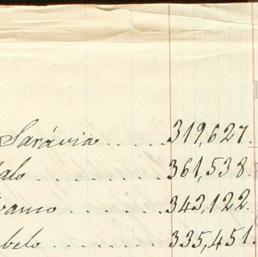 Sarávia ..... 319,627.
alo ....... 361,538.
anco ....... 343,122.
belo ....... 335,451.